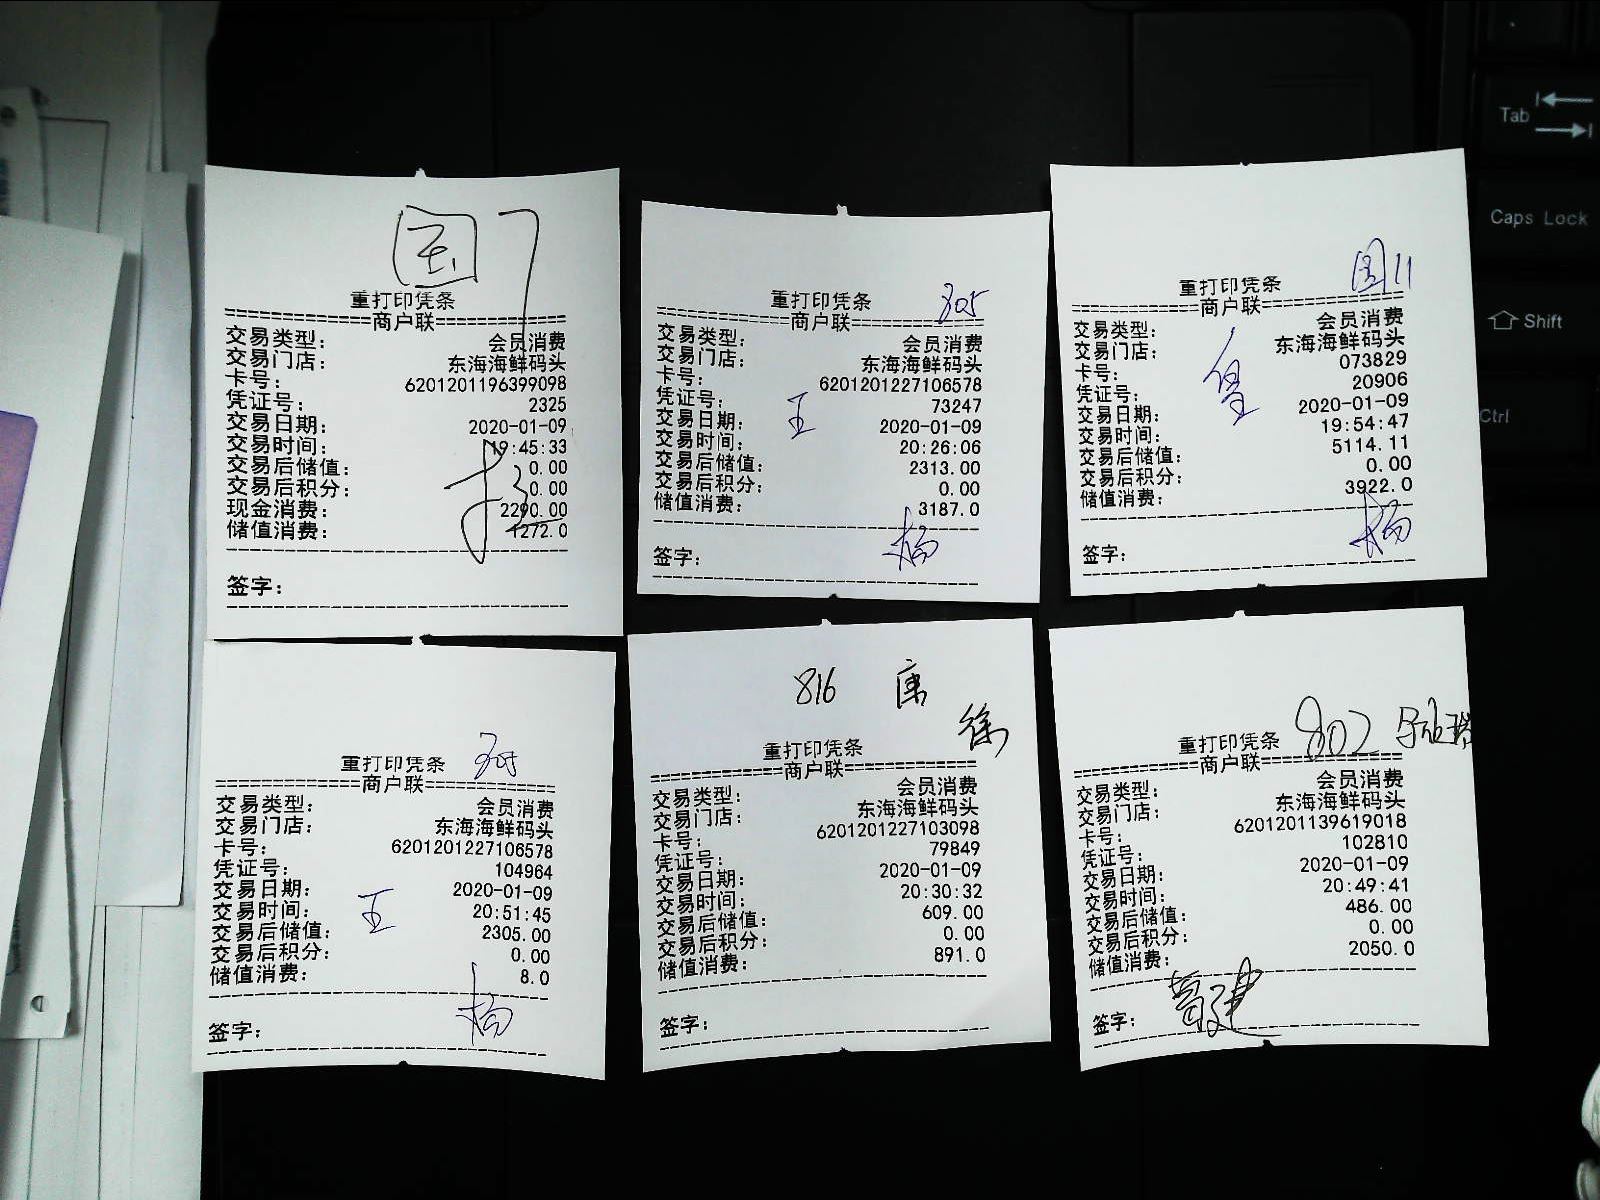 国 7
重打印凭条
==============商户联==============
交易类型： 会员消费
交易门店： 东海海鲜码头
卡号： 6201201196399098
凭证号： 2325
交易日期： 2020-01-09
交易时间： 19:45:33
交易后储值： 0.00
交易后积分： 0.00
现金消费： 2290.00
储值消费： 1272.0
签字：
重打印凭条 305
==============商户联==============
交易类型： 会员消费
交易门店： 东海海鲜码头
卡号： 6201201227106578
凭证号： 73247
王
交易日期： 2020-01-09
交易时间： 20:26:06
交易后储值： 2313.00
交易后积分： 0.00
储值消费： 3187.0
杨
签字：
国11
重打印凭条
==============商户联==============
交易类型： 会员消费
交易门店： 东海海鲜码头
卡号： 073829
凭证号： 20906
交易日期： 2020-01-09
交易时间： 19:54:47
交易后储值： 5114.11
交易后积分： 0.00
储值消费： 3922.0
杨
签字：
重打印凭条 305
==============商户联==============
交易类型： 会员消费
交易门店： 东海海鲜码头
卡号： 6201201227106578
凭证号： 104964
交易日期： 2020-01-09
王
交易时间： 20:51:45
交易后储值： 2305.00
交易后积分： 0.00
储值消费： 8.0
杨
签字：
816 唐
徐
重打印凭条
==============商户联==============
交易类型： 会员消费
交易门店： 东海海鲜码头
卡号： 6201201227103098
凭证号： 79849
交易日期： 2020-01-09
交易时间： 20:30:32
交易后储值： 609.00
交易后积分： 0.00
储值消费： 891.0
签字：
重打印凭条 802
==============商户联==============
交易类型： 会员消费
交易门店： 东海海鲜码头
卡号： 6201201139619018
凭证号： 102810
交易日期： 2020-01-09
交易时间： 20:49:41
交易后储值： 486.00
交易后积分： 0.00
储值消费： 2050.0
签字：
Tab
Caps Lock
Shift
Ctrl